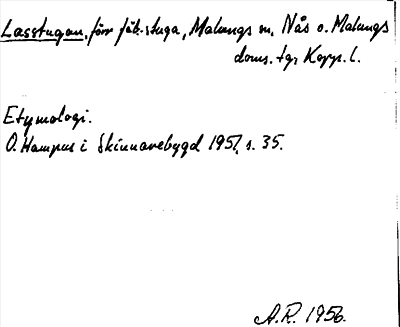 Lasstugan, förr fäb.stuga, Malungs sn, Nås o. Malungs
doms. tgr Kopp. l.
Etymologi.
O. Hampus i Skinnarebygd 1951, s. 35.
A.R. 1956.